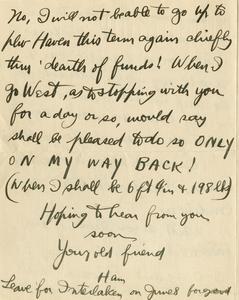 No, I will not be able to go up to
New Haven this term again chiefly
thru' dearth of funds! When I
go West, as to stopping with you
for a day or so, would say
shall be pleased to do so ONLY
ON MY WAY BACK!
(When I shall be 6 ft 4in & 198 lbs)
Hoping to hear from you
soon
Your old friend
Ham
Leave for Interlaken on June 8